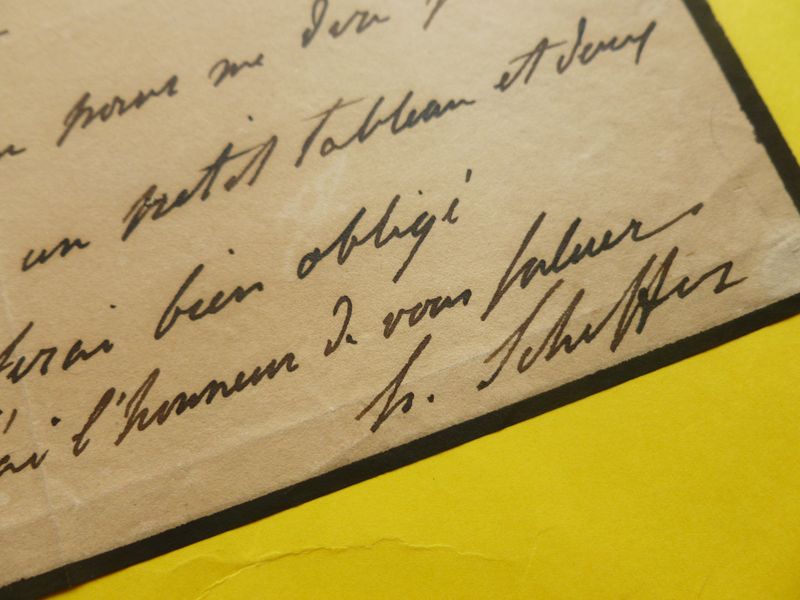 pour me dire
un petit tableau et deux
serai bien obligé
j'ai l'honneur de vous saluer
h. Scheffer